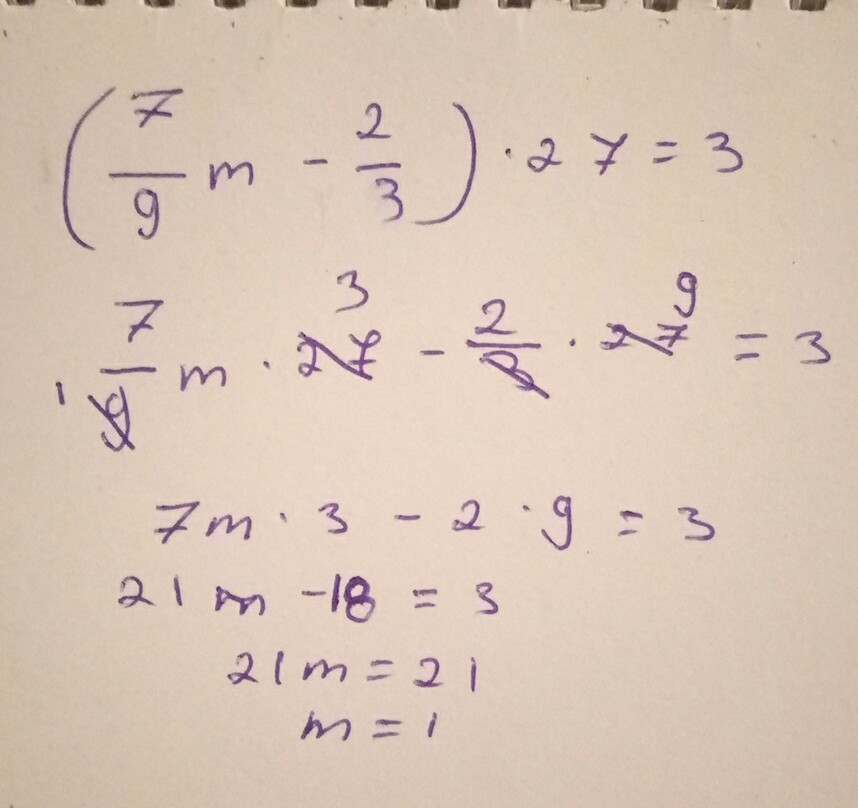 (7/9 m - 2/3) · 27 = 3
7/9 m · 27 3 - 2/3 · 27 9 = 3
1
7m · 3 - 2 · 9 = 3
21m - 18 = 3
21m = 21
m = 1